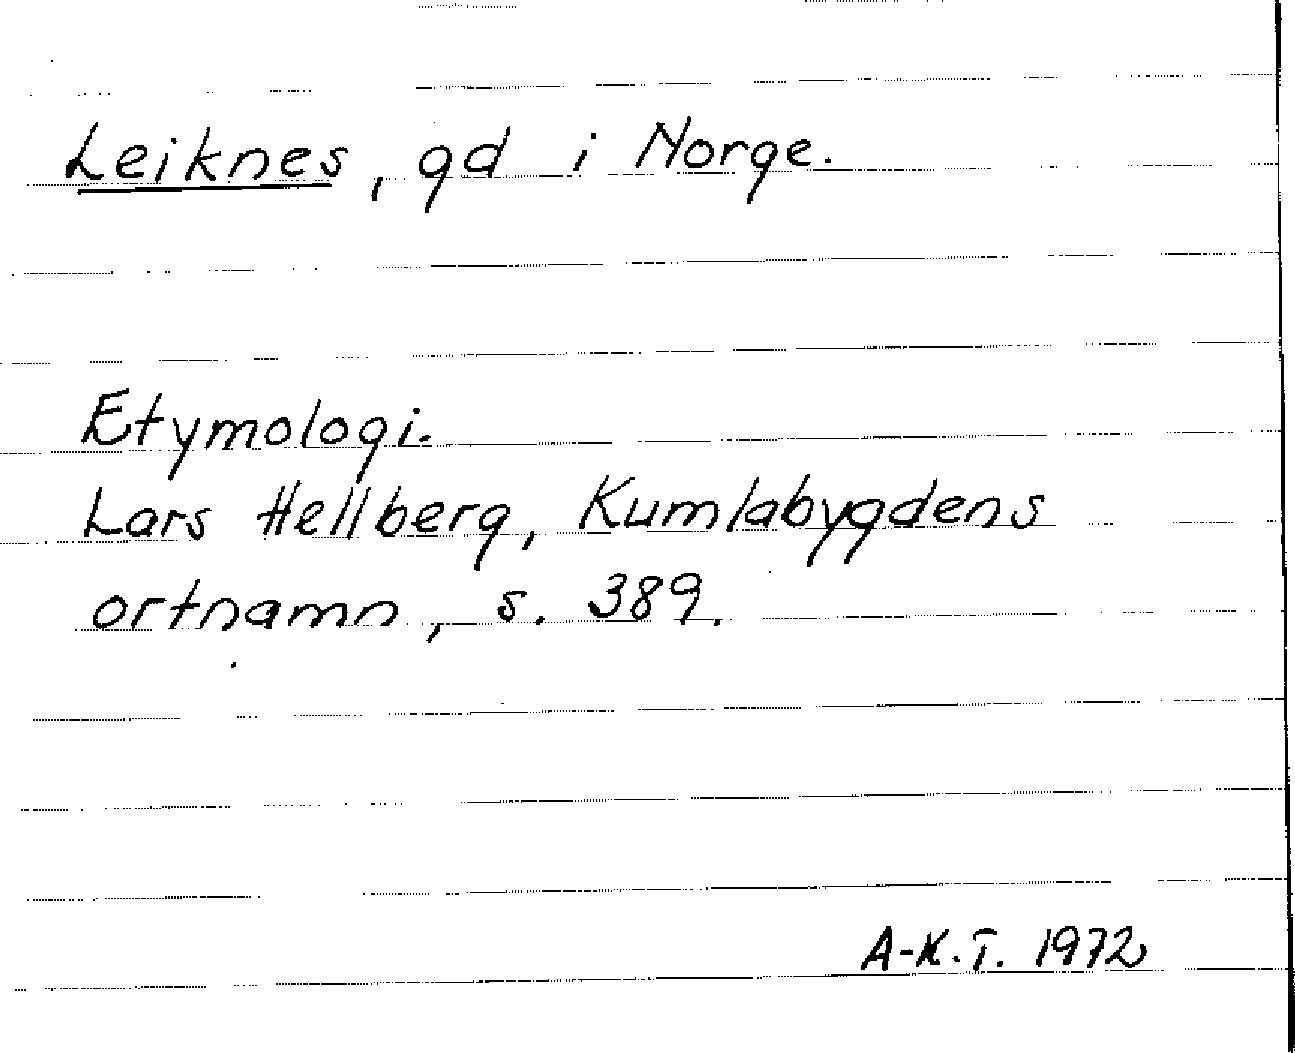 Leiknes, gd i Norge.
Etymologi.
Lars Hellberg, Kumlabygdens
ortnamn, s. 389.
A-K.T. 1972